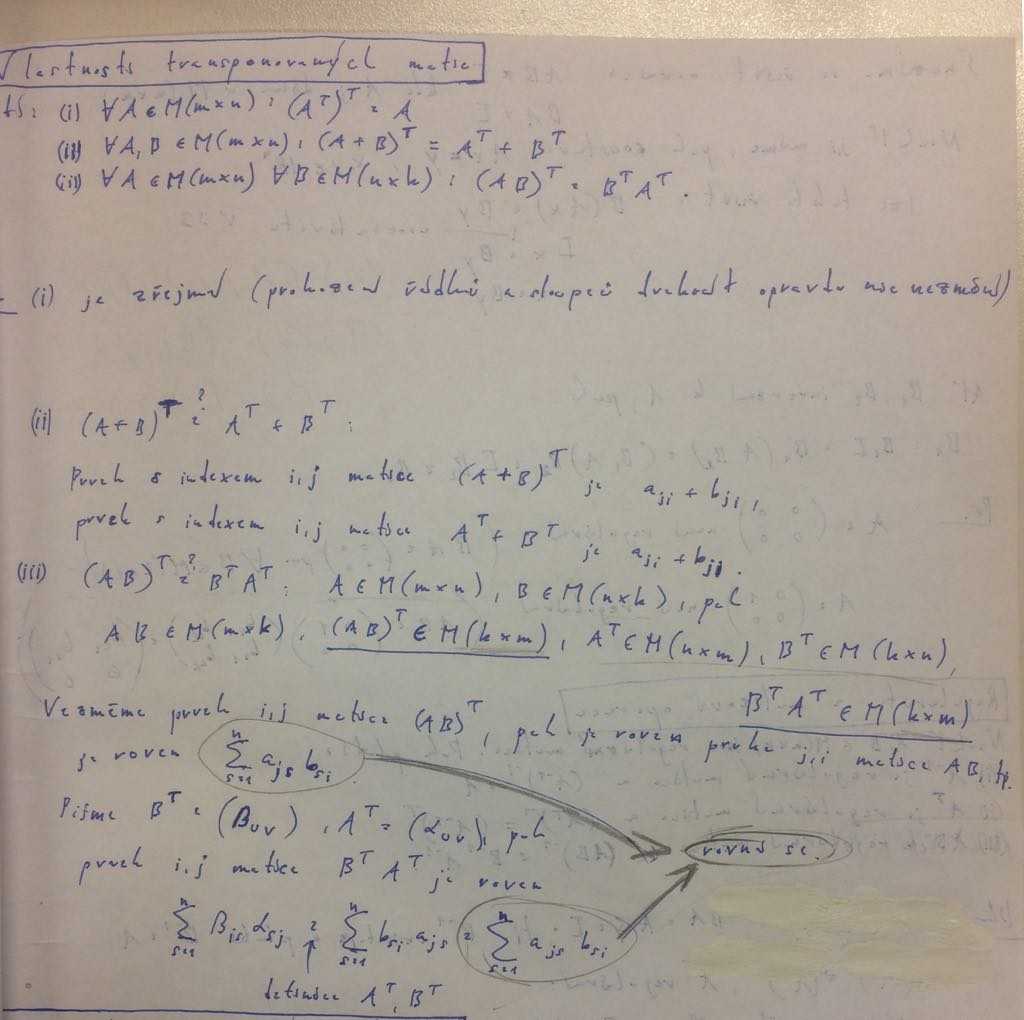 Vlastnosti transponovaných matic
(i) ∀A ∈ M(m×n) : (A^T)^T = A
(ii) ∀A,B ∈ M(m×n) : (A+B)^T = A^T + B^T
(iii) ∀A ∈ M(m×n) ∀B ∈ M(n×k) : (AB)^T = B^T A^T.
(i) je zřejmé (prohození řádků a sloupců dvakrát opravdu nic nezmění)
(ii) (A+B)^T ?= A^T + B^T :
Prvek s indexem i,j matice (A+B)^T je a_ji + b_ji,
prvek s indexem i,j matice A^T + B^T je a_ji + b_ji.
(iii) (AB)^T ?= B^T A^T : A ∈ M(m×n), B ∈ M(n×k), pak
AB ∈ M(m×k), (AB)^T ∈ M(k×m), A^T ∈ M(n×m), B^T ∈ M(k×n),
B^T A^T ∈ M(k×m)
Vezměme prvek i,j matice (AB)^T, pak je roven prvku j,i matice AB, tj.
je roven ∑_{s=1}^n a_js b_si
Pišme B^T = (β_uv), A^T = (α_uv), pak
prvek i,j matice B^T A^T je roven
rovná se.
∑_{s=1}^n β_is α_sj = ∑_{s=1}^n b_si a_js = ∑_{s=1}^n a_js b_si
definice A^T, B^T